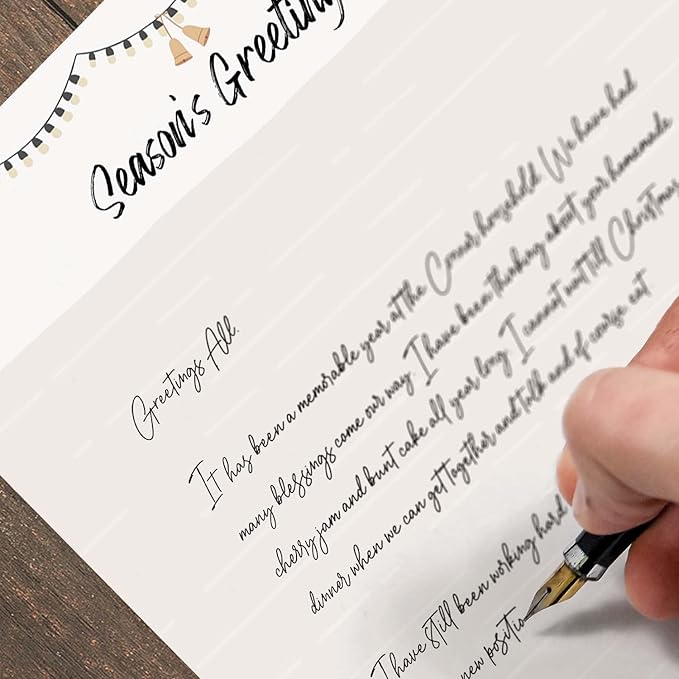 Season's Greeting
Greetings All,
It has been a memorable year at the Connor household. We have had
many blessings come our way. I have been thinking about your homemade
cherry jam and bunt cake all year long. I cannot wait till Christmas
dinner when we can get together and talk and of course eat
I have still been working hard
new positio